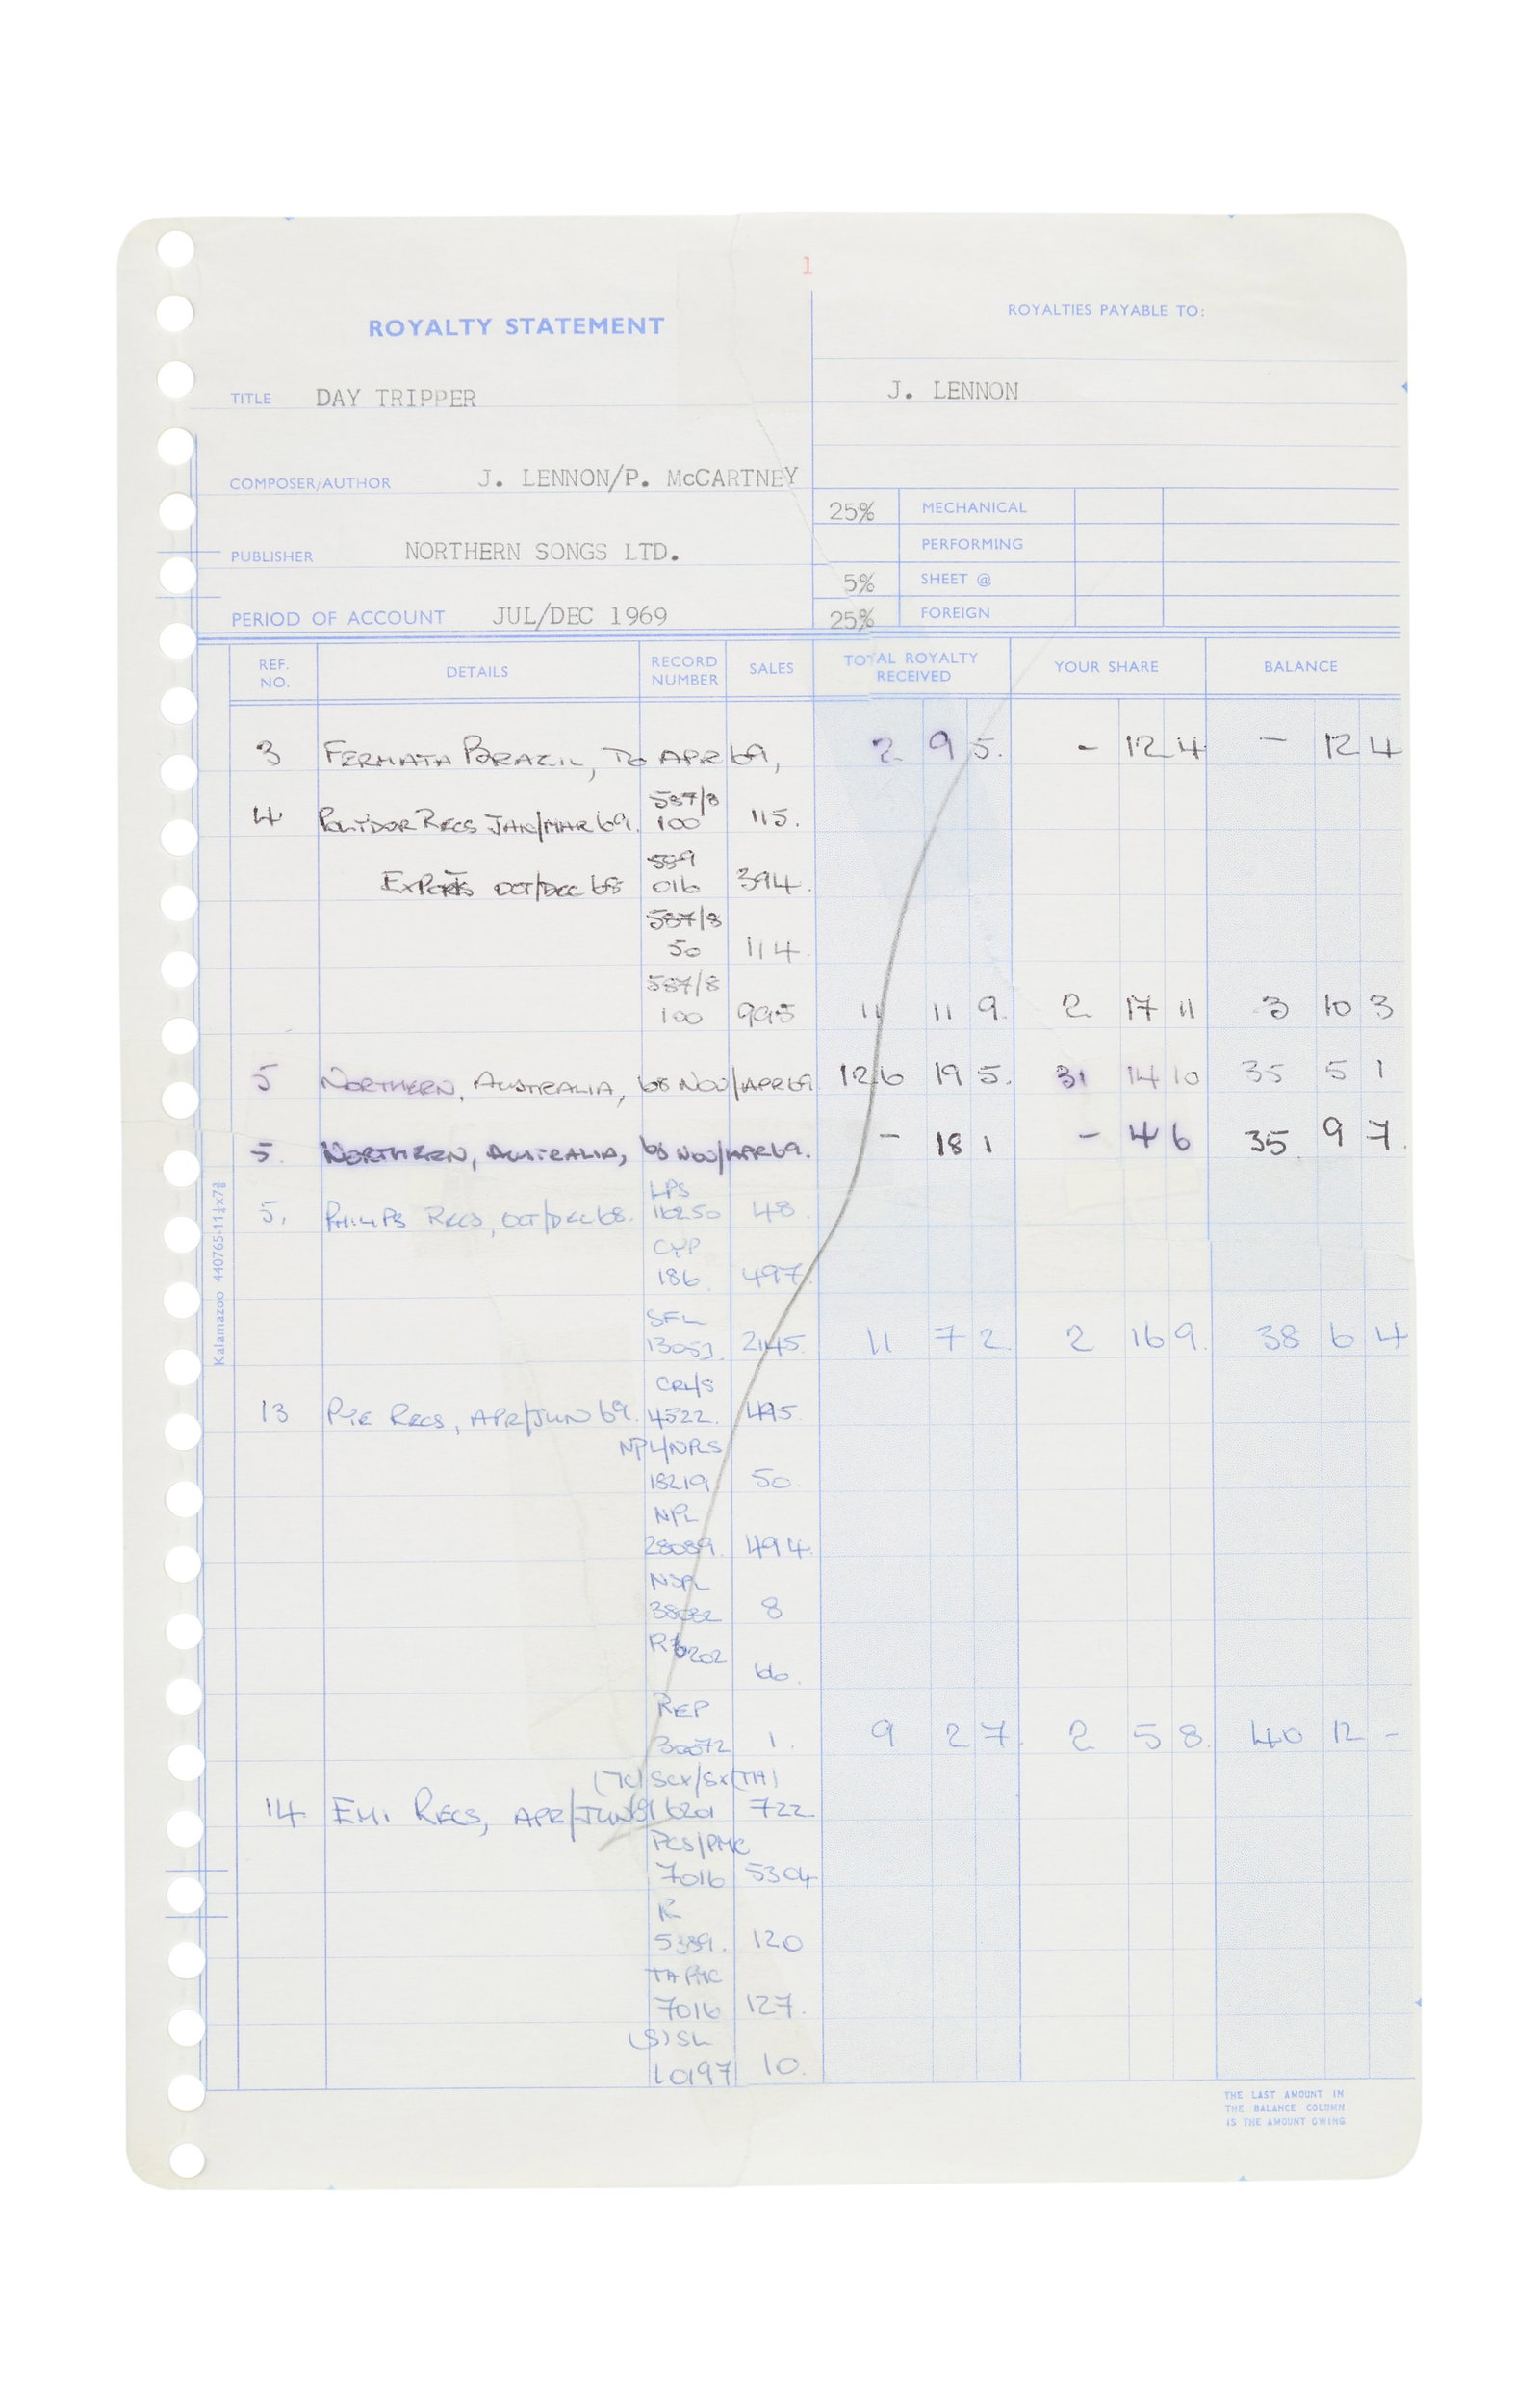 1
ROYALTY STATEMENT
ROYALTIES PAYABLE TO:
TITLE DAY TRIPPER
J. LENNON
COMPOSER/AUTHOR J. LENNON/P. McCARTNEY
25% MECHANICAL
PERFORMING
PUBLISHER NORTHERN SONGS LTD.
5% SHEET @
PERIOD OF ACCOUNT JUL/DEC 1969
25% FOREIGN
REF. NO. DETAILS RECORD NUMBER SALES TOTAL ROYALTY RECEIVED YOUR SHARE BALANCE
3 FERMATA BRAZIL, TO APR 69, 2 9 5. - 12 4 - 12 4
587/8
4 POLYDOR RECS JAN/MAR 69. 100 115.
589
EXPORTS OCT/DEC 68 016 394.
587/8
50 114
587/8
100 995 11 11 9. 2 17 11 3 10 3
5 NORTHERN, AUSTRALIA, 68 NOV/APR 69 126 19 5. 31 14 10 35 5 1
5. NORTHERN, AUSTRALIA, 68 NOV/APR 69. - 18 1 - 4 6 35. 9 7.
LPS
5, PHILIPS RECS, OCT/DEC 68. 116250 48
CYP
186. 497.
SFL
13053. 2145. 11 7 2. 2 16 9. 38 6 4
CRL/S
13 PYE RECS, APR/JUN 69. 4522. 495.
NPL/NRS
18219 50.
NPL
28089. 494.
NSPL
38032 8
R6202
66.
REP
30072 1. 9 2 7. 2 5 8. 40 12 -
(TC) SCX/SX (TA)
14. EMI RECS, APR/JUN 69 6201 722
PCS/PMC
7016 5304
R
5389. 120
TA PMC
7016 127.
(S) SL
10197 10.
Kalamazoo 440765-11¼x7⅞
THE LAST AMOUNT IN
THE BALANCE COLUMN
IS THE AMOUNT OWING